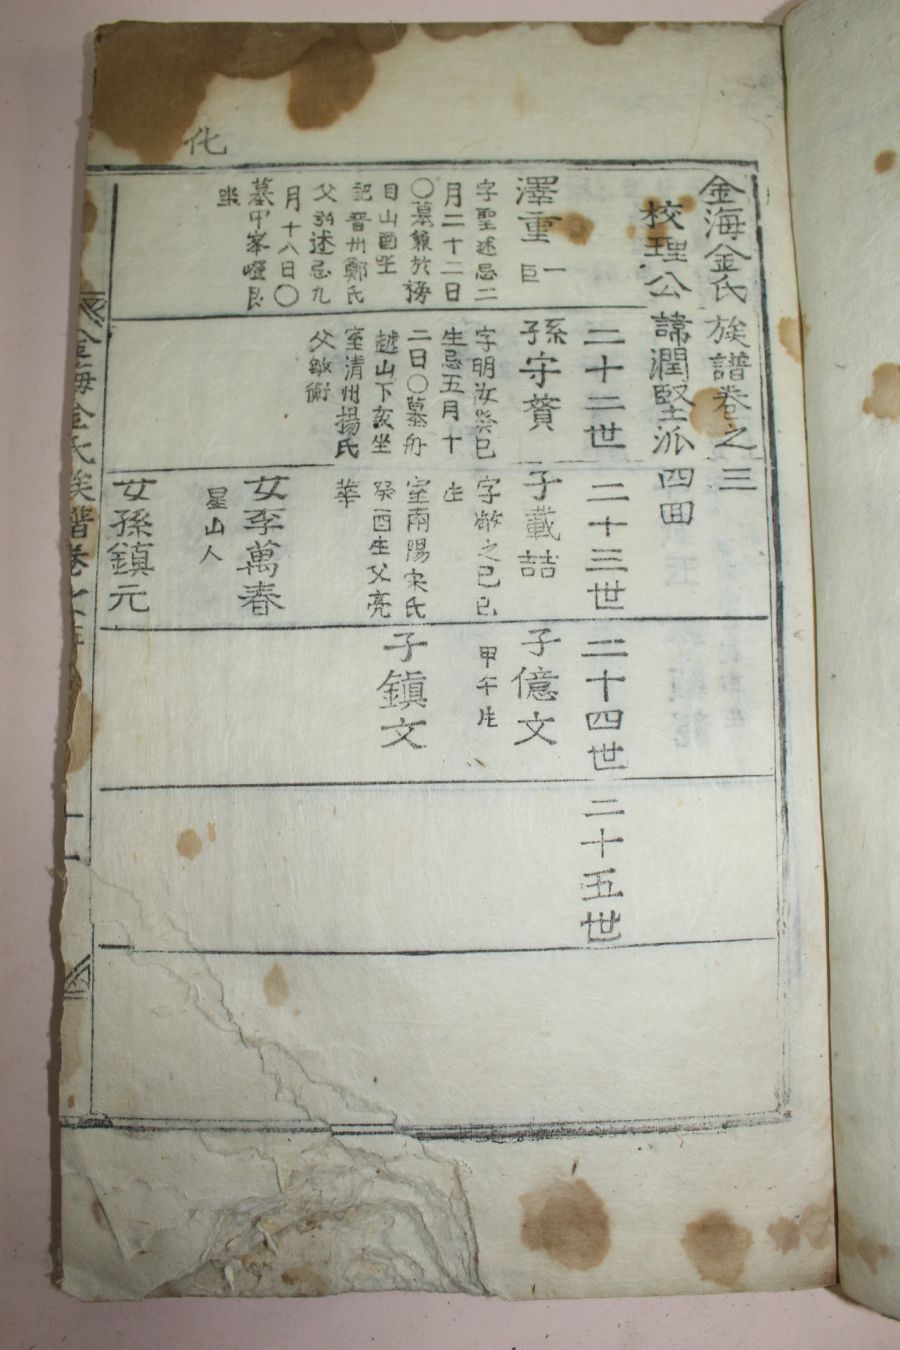 化
金海金氏族譜卷之三
校理公諱潤堅派 四回
二十二世
二十三世
二十四世
二十五世
澤重 一巨
字聖述忌二
月二十二日
〇墓兼於
日山酉坐
配晋州鄭氏
父弘述忌九
月十八日〇
墓甲峯嶝艮
坐
孫守贇
字明汝癸巳
生忌五月十
二日〇墓舟
越山下亥坐
室清州揚氏
父敏衡
子載喆
字敬之己巳
生
室南陽宋氏
癸酉生父亮
華
女李萬春
星山人
女孫鎮元
子億文
甲午生
子鎮文
金海金氏族譜卷之三